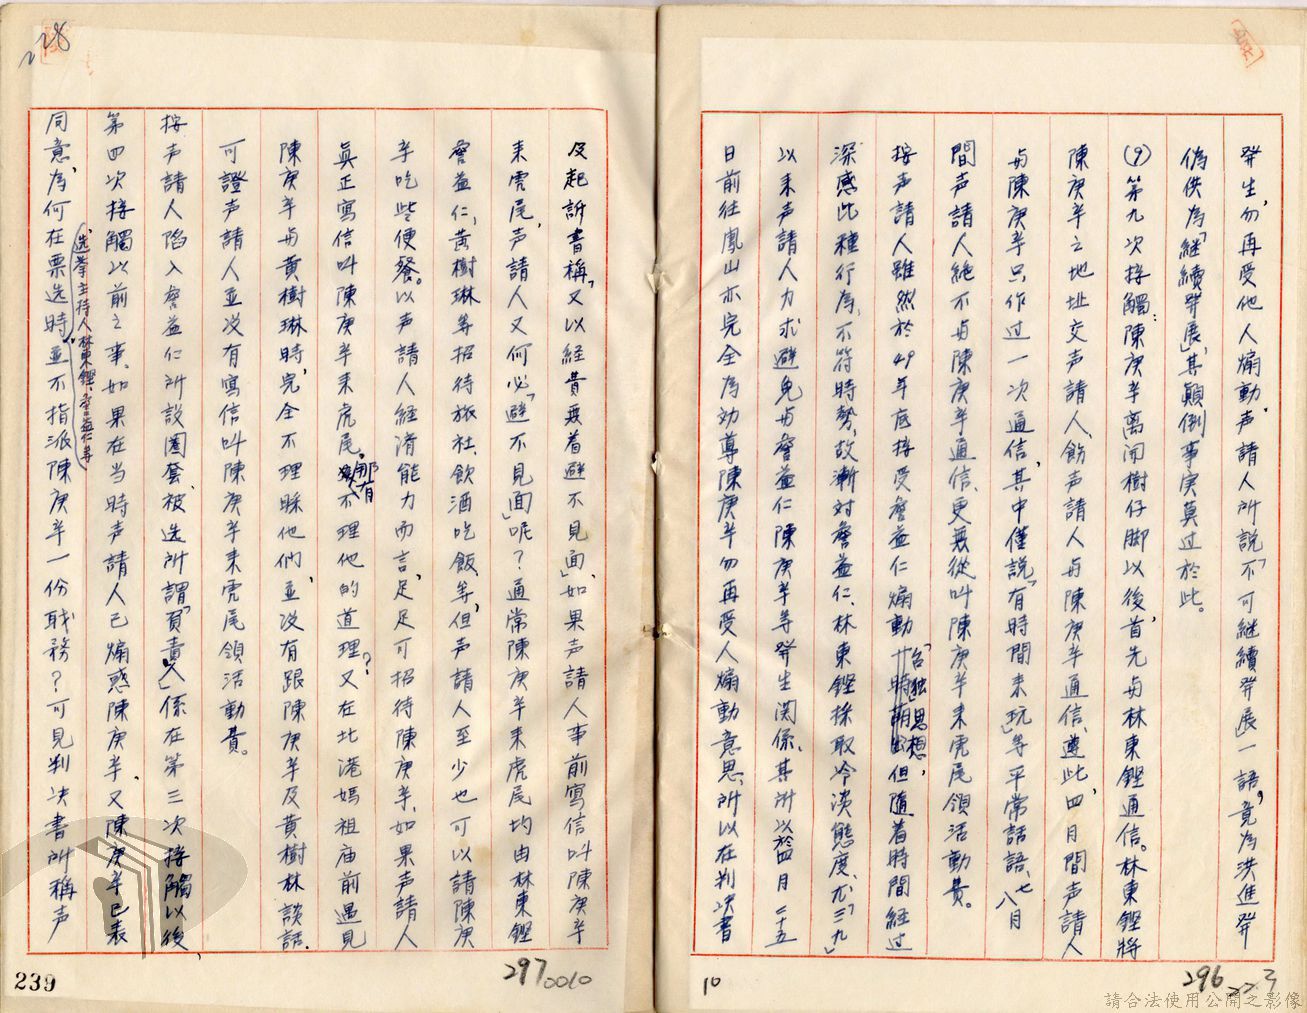 發生，勿再受他人煽動，声請人所説「不可継續発展」一語，竟為洪進発
偽供為「継續発展」，其顛倒事実莫过於此。
(9)第九次接觸：陳庚辛离開樹仔脚以後，首先与林東鏗通信。林東鏗将
陳庚辛之地址交声請人，飭声請人与陳庚辛通信，遵此，四月間声請人
与陳庚辛只作过一次通信，其中僅説「有時間来玩」等平常話語，七、八月
間声請人絶不与陳庚辛通信，更無從叫陳庚辛来虎尾領活動費。
按声請人雖然於49年底接受詹益仁煽動「台独」思想，但隨着時間経过
深感此種行為，不符時勢，故漸対詹益仁、林東鏗採取冷淡態度，尤「三九」
以来声請人力求避免与詹益仁陳庚辛等発生関係，其所以於四月二十五
日前往鳳山亦完全為効尊陳庚辛勿再受人煽動意思，所以在判决書
及起訴書稱「又以経費無着避不見面」，如果声請人事前寫信叫陳庚辛
来虎尾，声請人又何必「避不見面」呢？通常陳庚辛来虎尾均由林東鏗
詹益仁、黃樹琳等招待旅社、飲酒吃飯等，但声請人至少也可以請陳庚
辛吃些便餐。以声請人経濟能力而言，足足可招待陳庚辛，如果声請人
真正寫信叫陳庚辛来虎尾，那有不理他的道理？又在北港媽祖庙前遇見
陳庚辛与黃樹琳時，完全不理睬他們，並没有跟陳庚辛及黃樹林談話，
可證声請人並没有寫信叫陳庚辛来虎尾領活動費。
按声請人陷入詹益仁所設圈套，被选所謂「負責人」係在第三次接觸以後，
第四次接觸以前之事，如果在当時声請人已煽惑陳庚辛，又陳庚辛已表
同意，為何在票选時，（选挙主持人林東鏗、詹益仁等）並不指派陳庚辛一份職務？可見判决書所稱声
228
239
297
0010
10
296
請合法使用公開之影像